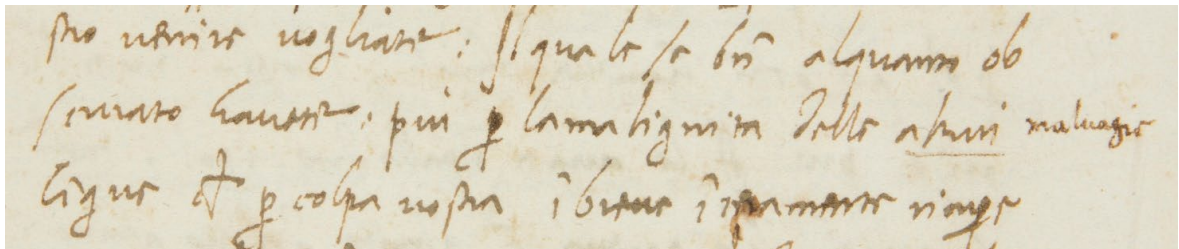 stro venire vogliate: Il quale se bñ alquanto ob
servato havete: piu ꝑ la malignita delle altrui malvagie
lĩgue ch ꝑ colpa vostra ĩ breve ĩteramente